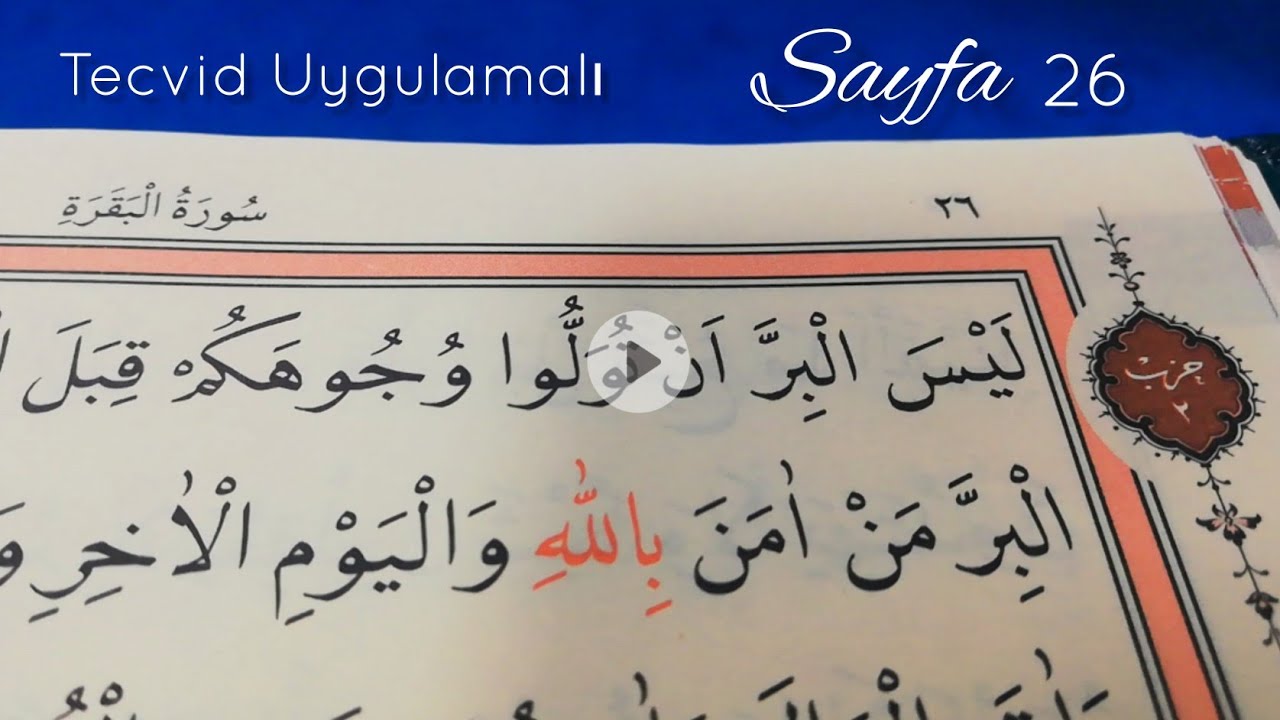 Tecvid Uygulamalı Sayfa 26
سُورَةُ الْبَقَرَةِ ٢٦
لَيْسَ الْبِرَّ اَنْ تُوَلُّوا وُجُوهَكُمْ قِبَلَ
حزب
٢
الْبِرَّ مَنْ اٰمَنَ بِاللّٰهِ وَالْيَوْمِ الْاٰخِرِ